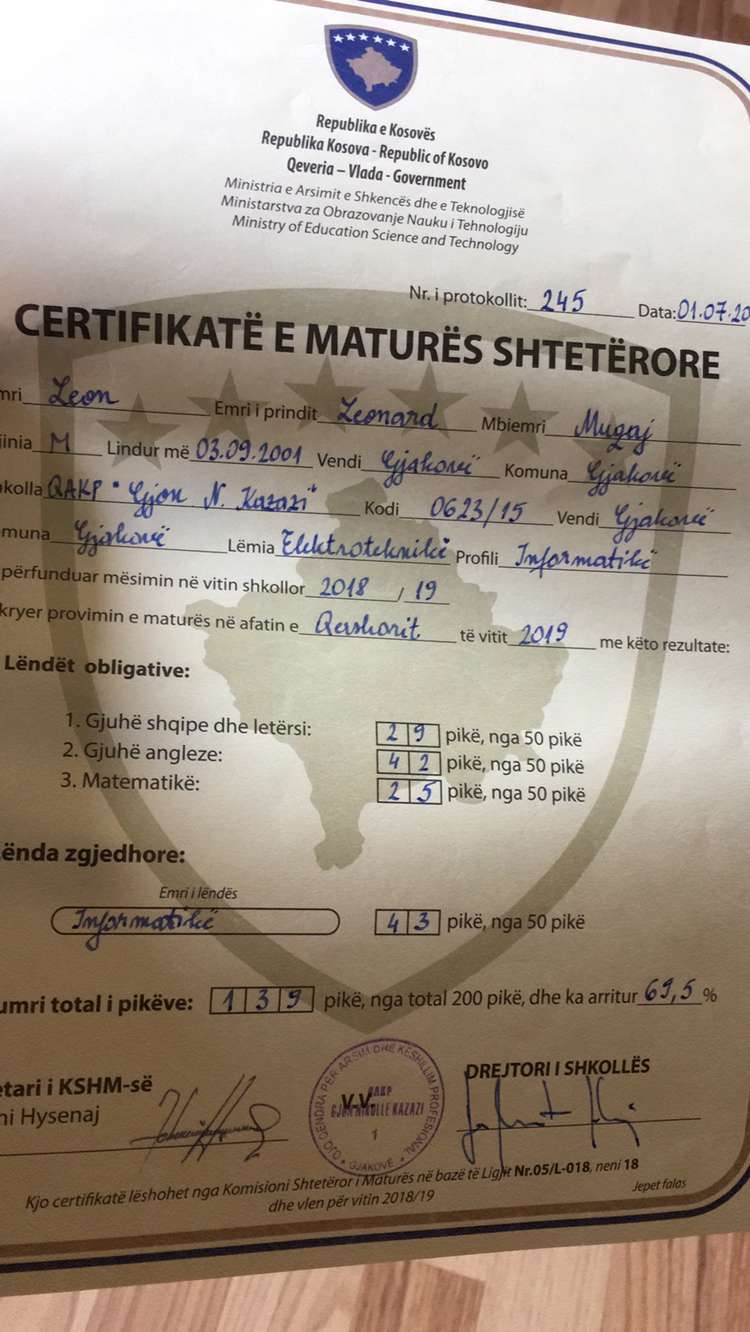 Republika e Kosovës
Republika Kosova - Republic of Kosovo
Qeveria – Vlada - Government
Ministria e Arsimit e Shkencës dhe e Teknologjisë
Ministarstva za Obrazovanje Nauku i Tehnologiju
Ministry of Education Science and Technology
Nr. i protokollit: 245 Data: 01.07.20
CERTIFIKATË E MATURËS SHTETËRORE
mri Leon Emri i prindit Leonard Mbiemri Mugaj
jinia M Lindur më 03.09.2001 Vendi Gjakovë Komuna Gjakovë
kolla QAKP "Gjon N. Kazazi" Kodi 0623/15 Vendi Gjakovë
muna Gjakovë Lëmia Elektroteknikë Profili Informatikë
përfunduar mësimin në vitin shkollor 2018 / 19
kryer provimin e maturës në afatin e Qershorit të vitit 2019 me këto rezultate:
Lëndët obligative:
1. Gjuhë shqipe dhe letërsi: 29 pikë, nga 50 pikë
2. Gjuhë angleze: 42 pikë, nga 50 pikë
3. Matematikë: 25 pikë, nga 50 pikë
ënda zgjedhore:
Emri i lëndës
Informatikë 43 pikë, nga 50 pikë
umri total i pikëve: 139 pikë, nga total 200 pikë, dhe ka arritur 69,5 %
etari i KSHM-së DREJTORI I SHKOLLËS
ni Hysenaj
V.V.
QAKP
GJON NIKOLLE KAZAZI
1
QENDRA PËR ARSIM DHE KËSHILLIM PROFESIONAL
GJAKOVË
Kjo certifikatë lëshohet nga Komisioni Shtetëror i Maturës në bazë të Ligjit Nr.05/L-018, neni 18
dhe vlen për vitin 2018/19
Jepet falas